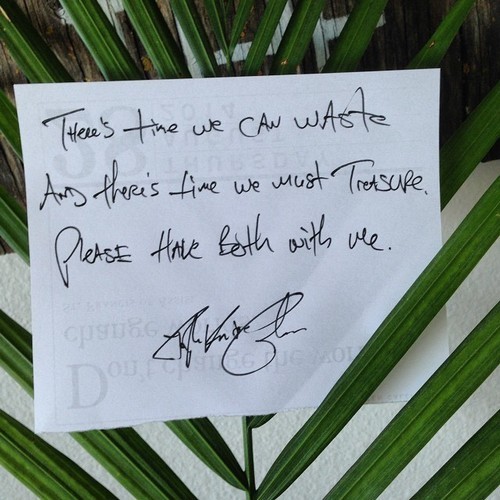 THERE'S time we CAN WASTE
AND there's time we must TREASURE.
PLEASE HAVE BOTH with me.